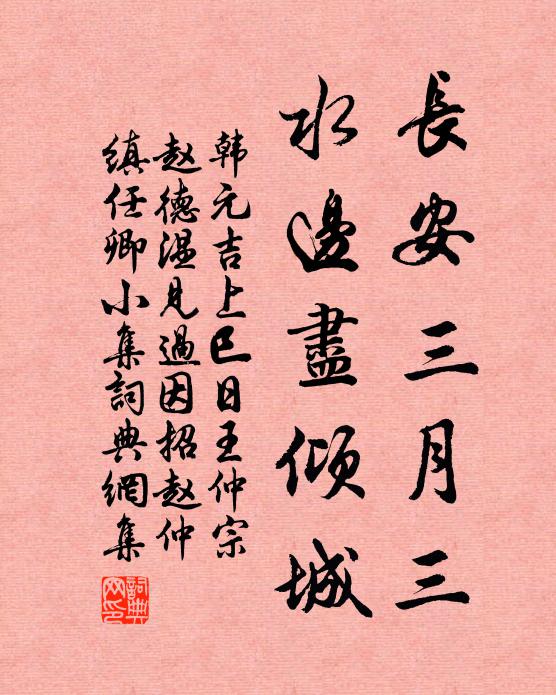 長安三月三
水邊盡傾城
韩元吉上巳日王仲宗
赵德温見過因招赵仲
縝任卿小集詞典網集
詞典網印